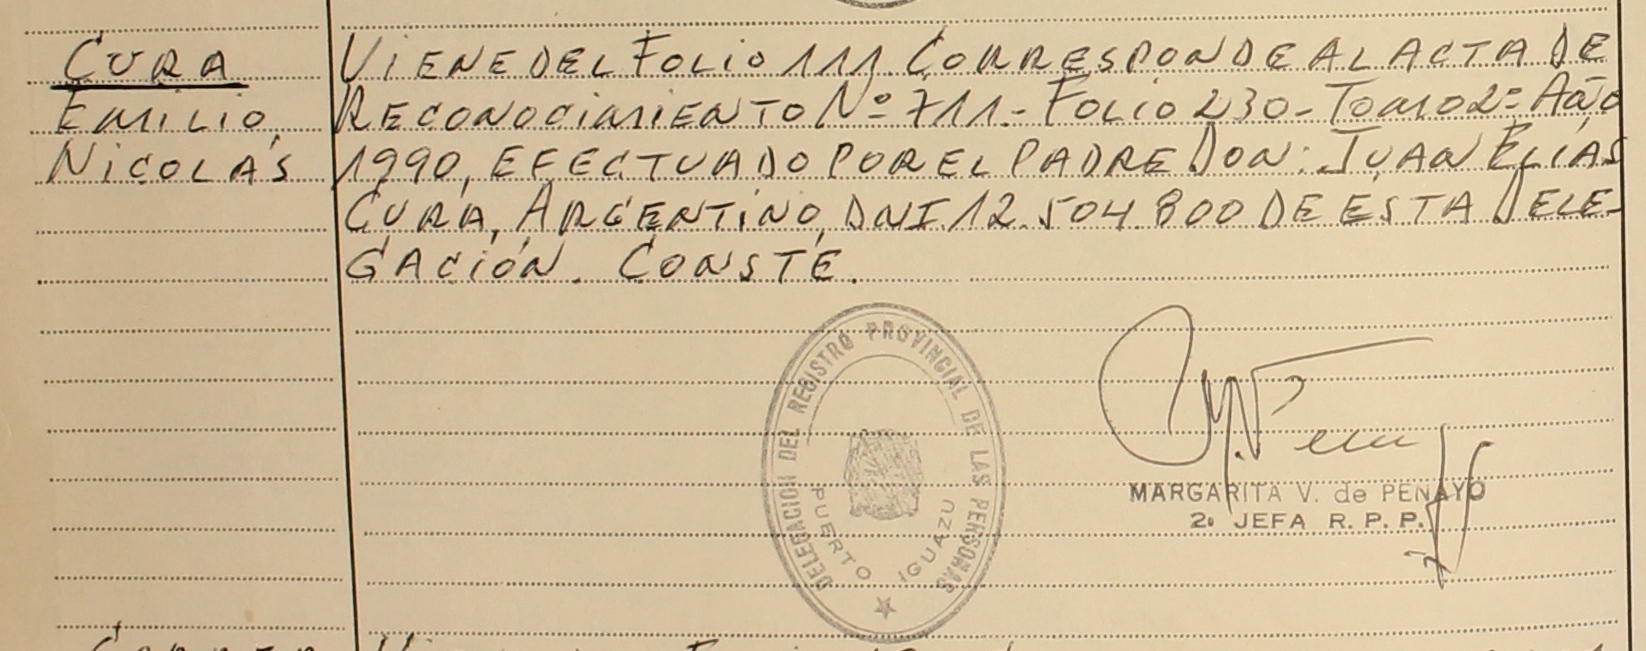 CURA
EMILIO
NICOLÁS
VIENE DEL FOLIO 111. CORRESPONDE AL ACTA DE
RECONOCIMIENTO Nº 711 - FOLIO 230 - TOMO 2º AÑO
1990, EFECTUADO POR EL PADRE DON: JUAN ELÍAS
CURA, ARGENTINO, DNI. 12.504.800 DE ESTA DELE-
GACIÓN. CONSTE.
DELEGACION DEL REGISTRO PROVINCIAL DE LAS PERSONAS
PUERTO IGUAZU
MARGARITA V. de PENAYO
2º JEFA R. P. P.